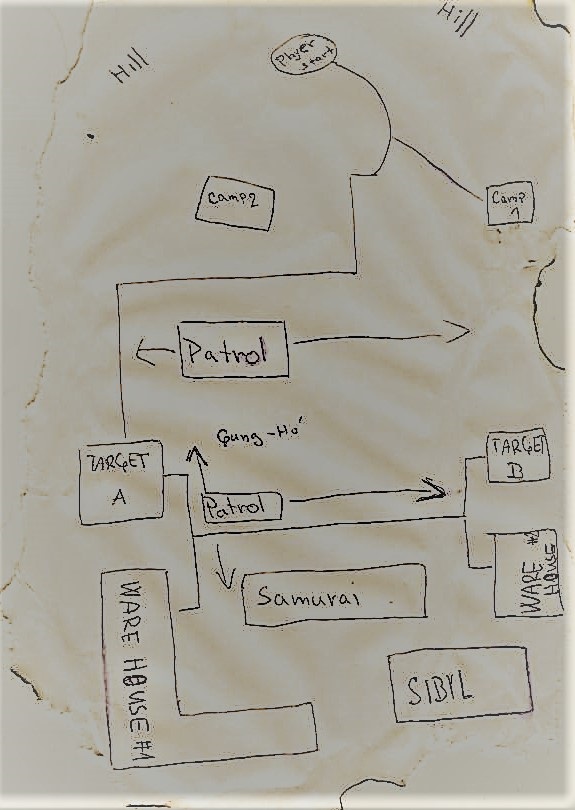 Hill
Hill
Player
start
Camp2
Camp
1
Patrol
Gung-Ho
TARGET
A
TARGET
B
Patrol
WARE HOUSE #1
Samurai
WARE #2
HOUSE
SIBYL